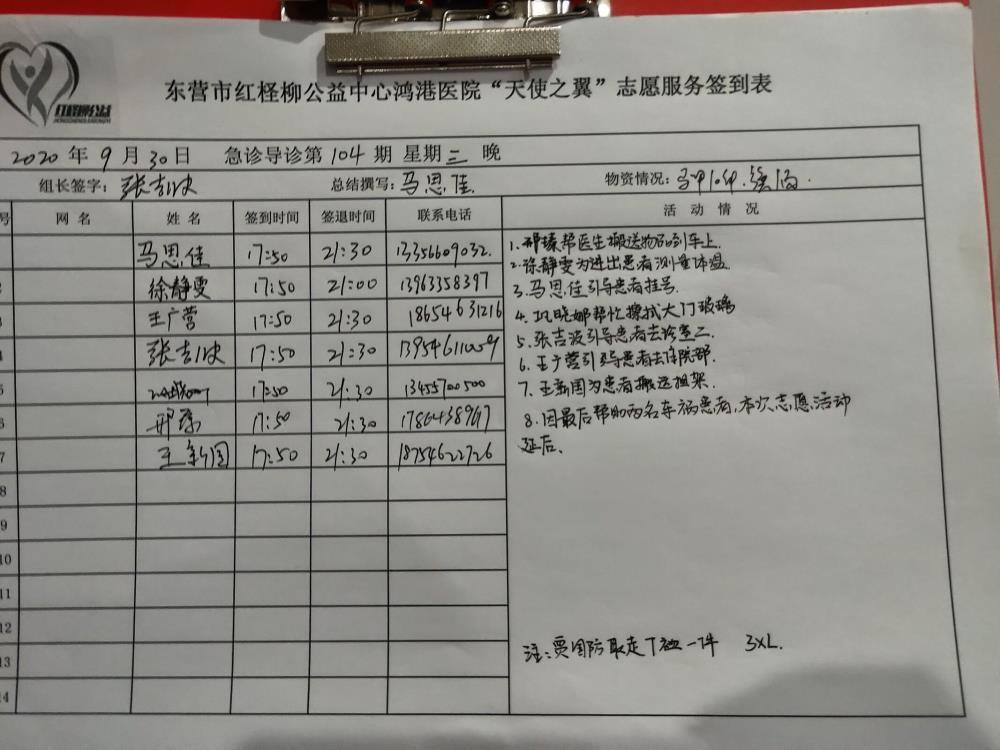 红柽柳公益
东营市红柽柳公益中心鸿港医院“天使之翼”志愿服务签到表
2020 年 9 月 30 日 急诊导诊第 104 期 星期 三 晚
组长签字: 张吉波 总结撰写: 马思佳. 物资情况:
号 网 名 姓 名 签到时间 签退时间 联系电话 活 动 情 况
马思佳 17:50 21:30 13356609032.
徐静雯 17:50 21:00 13963358397
王广营 17:50 21:30 18654631216
张吉波 17:50 21:30 139546110059
17:50 21:30 13455700500
邢臻 17:50 21:30
王新国 17:50 21:30 18754622726
8
9
10
11
12
13
14
1. 邢臻帮医生搬送物品到车上.
2. 徐静雯为进出患者测量体温.
3. 马思佳引导患者挂号.
4. 巩晓娜帮忙擦拭大门玻璃
5. 张吉波引导患者去诊室二.
6. 王广营引导患者去住院部.
7. 王新国为患者搬送担架.
8. 因最后帮助两名车祸患者,本次志愿活动
延后.
注:贾国防取走T恤一件 3XL.